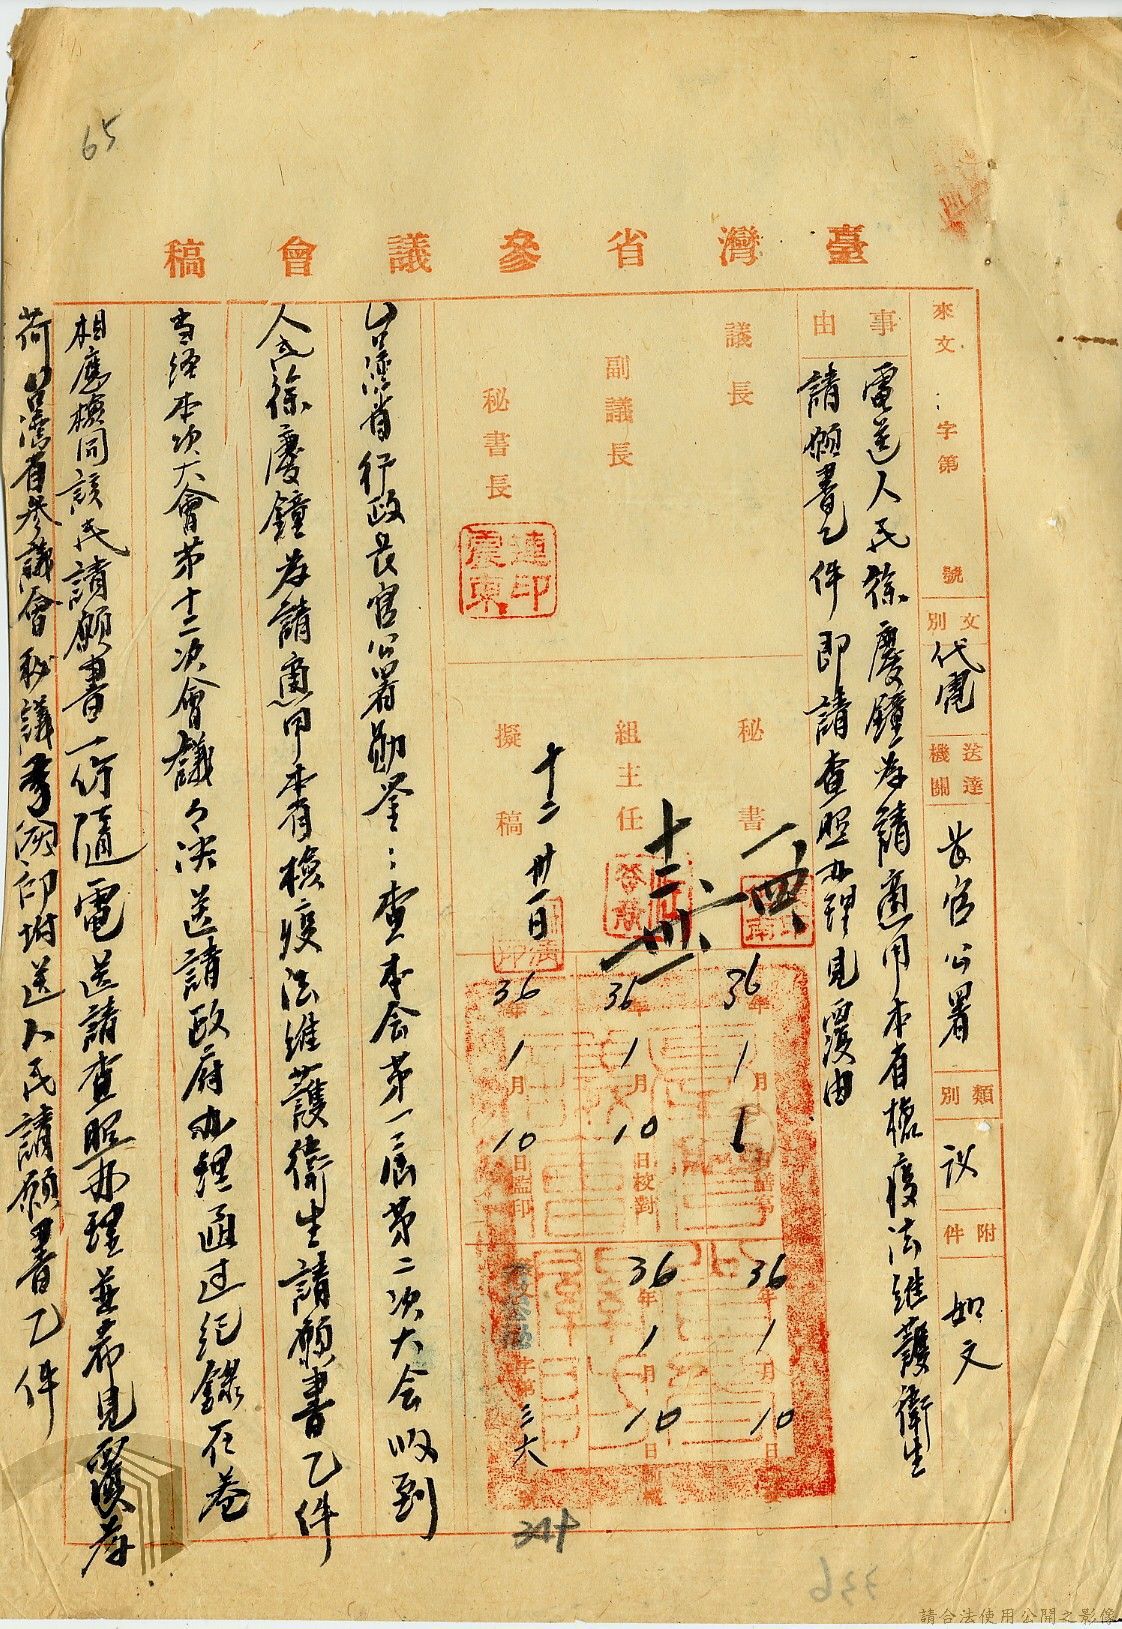 65
臺灣省參議會稿
來文 字第 號
文別 代電
送達機關 長官公署
類別 議
附件 如文
事由
電送人民徐慶鐘為請適用本省檢疫法維護衛生
請願書乙件即請查照办理見覆由
議長
副議長
秘書長
連震東印
秘書 一、四、
組主任 十二、卅一
擬稿 十二 卅一日
36年1月6日繕寫
36年1月10日校對
36年1月10日監印
36年1月10日
36年1月10日
字第三六 號
台湾省行政長官公署勛鉴：查本会第一屆第二次大会收到
人民徐慶鐘為請適用本省檢疫法維護衛生請願書乙件
当經本次大會第十二次會議々決送請政府办理通过紀錄在卷
相應檢同該民請願書一份隨電送請查照办理並希見覆為
荷台湾省參議會秘議 印附送人民請願書乙件
336
請合法使用公開之影像